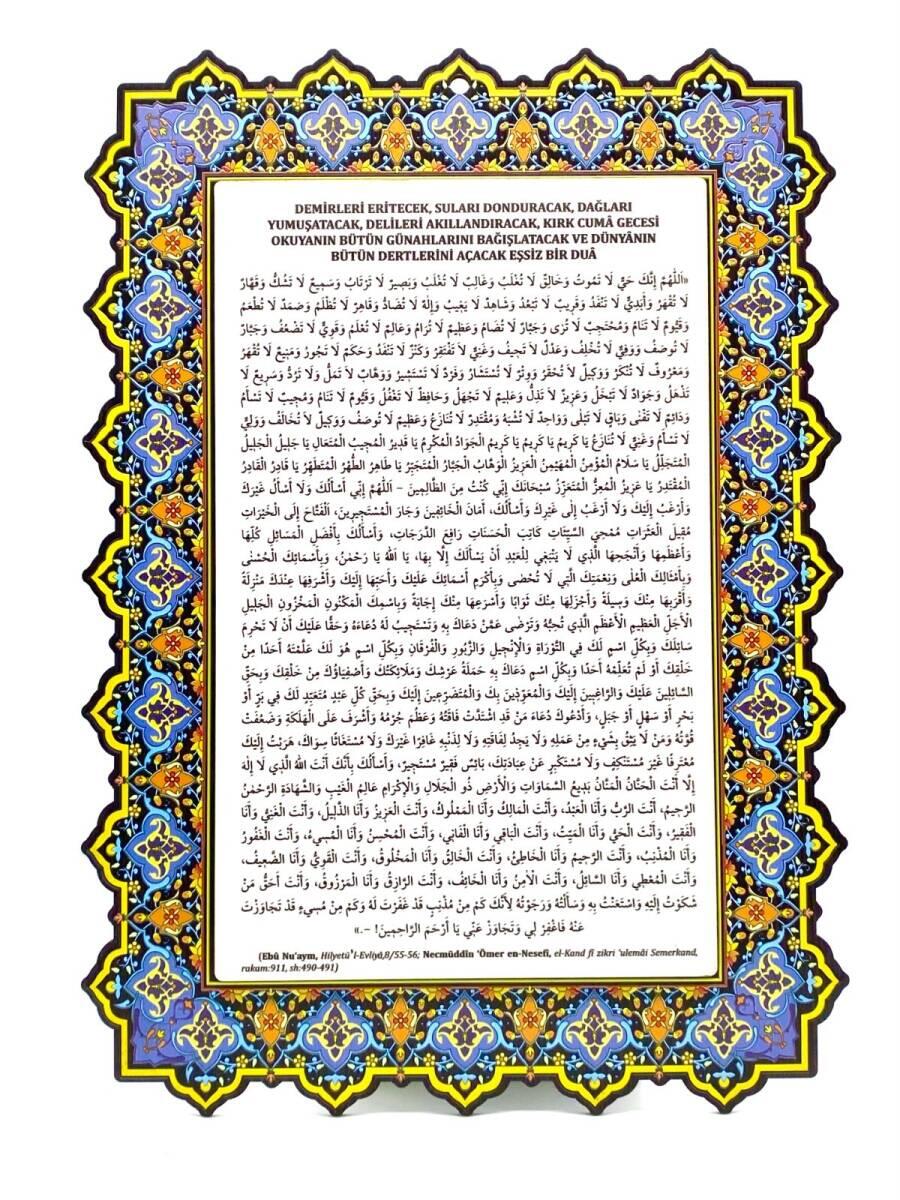 DEMİRLERİ ERİTECEK, SULARI DONDURACAK, DAĞLARI
YUMUŞATACAK, DELİLERİ AKILLANDIRACAK, KIRK CUMÂ GECESİ
OKUYANIN BÜTÜN GÜNAHLARINI BAĞIŞLATACAK VE DÜNYÂNIN
BÜTÜN DERTLERİNİ AÇACAK EŞSİZ BİR DUÂ
«اَللّٰهُمَّ إِنَّكَ حَيٌّ لَا تَمُوتُ وَخَالِقٌ لَا تُغْلَبُ وَغَالِبٌ لَا تُغْلَبُ وَبَصِيرٌ لَا تَرْتَابُ وَسَمِيعٌ لَا تَشُكُّ وَقَهَّارٌ
لَا تُقْهَرُ وَأَبَدِيٌّ لَا تَنْفَدُ وَقَرِيبٌ لَا تَبْعُدُ وَشَاهِدٌ لَا يَغِيبُ وَإِلٰهٌ لَا تُضَادُّ وَقَاهِرٌ لَا تُظْلَمُ وَصَمَدٌ لَا تُطْعَمُ
وَقَيُّومٌ لَا تَنَامُ وَمُحْتَجِبٌ لَا تُرٰى وَجَبَّارٌ لَا تُضَامُ وَعَظِيمٌ لَا تُرَامُ وَعَالِمٌ لَا تُعْلَمُ وَقَوِيٌّ لَا تَضْعُفُ وَجَبَّارٌ
لَا تُوصَفُ وَوَفِيٌّ لَا تُخْلِفُ وَعَدْلٌ لَا تَحِيفُ وَغَنِيٌّ لَا تَفْتَقِرُ وَكَنْزٌ لَا تَنْفَدُ وَحَكَمٌ لَا تَجُورُ وَمَنِيعٌ لَا تُقْهَرُ
وَمَعْرُوفٌ لَا تُنْكَرُ وَوَكِيلٌ لَا تُحْقَرُ وَوِتْرٌ لَا تُسْتَشَارُ وَفَرْدٌ لَا تَسْتَشِيرُ وَوَهَّابٌ لَا تَمَلُّ وَلَا تَرُدُّ وَسَرِيعٌ لَا
تَذْهَلُ وَجَوَادٌ لَا تَبْخَلُ وَعَزِيزٌ لَا تَذِلُّ وَعَلِيمٌ لَا تَجْهَلُ وَحَافِظٌ لَا تَغْفُلُ وَقَيُّومٌ لَا تَنَامُ وَمُجِيبٌ لَا تَسْأَمُ
وَدَائِمٌ لَا تَفْنٰى وَبَاقٍ لَا تَبْلٰى وَوَاحِدٌ لَا تُشْبَهُ وَمُقْتَدِرٌ لَا تُنَازَعُ وَعَظِيمٌ لَا تُوصَفُ وَوَكِيلٌ لَا تُخَالَفُ وَوَلِيٌّ
لَا تَسْأَمُ وَغَنِيٌّ لَا تُنَازَعُ يَا كَرِيمُ يَا كَرِيمُ يَا كَرِيمُ الْجَوَادُ الْمُكَرَّمُ يَا قَدِيرُ الْمُجِيبُ الْمُتَعَالِ يَا جَلِيلُ الْجَلِيلُ
الْمُتَجَلِّلُ يَا سَلَامُ الْمُؤْمِنُ الْمُهَيْمِنُ الْعَزِيزُ الْوَهَّابُ الْجَبَّارُ الْمُتَجَبِّرُ يَا طَاهِرُ الطُّهْرُ الْمُتَطَهِّرُ يَا قَادِرُ الْقَادِرُ
الْمُقْتَدِرُ يَا عَزِيزُ الْمُعِزُّ الْمُتَعَزِّزُ سُبْحَانَكَ إِنِّي كُنْتُ مِنَ الظَّالِمِينَ – اَللّٰهُمَّ إِنِّي أَسْأَلُكَ وَلَا أَسْأَلُ غَيْرَكَ
وَأَرْغَبُ إِلَيْكَ وَلَا أَرْغَبُ إِلٰى غَيْرِكَ وَأَسْأَلُكَ، أَمَانَ الْخَائِفِينَ وَجَارَ الْمُسْتَجِيرِينَ، اَلْفَتَّاحُ إِلَى الْخَيْرَاتِ
مُقِيلَ الْعَثَرَاتِ مُمْحِيَ السَّيِّئَاتِ كَاتِبَ الْحَسَنَاتِ رَافِعَ الدَّرَجَاتِ، وَأَسْأَلُكَ بِأَفْضَلِ الْمَسَائِلِ كُلِّهَا
وَأَعْظَمِهَا وَأَنْجَحِهَا الَّذِي لَا يَنْبَغِي لِلْعَبْدِ أَنْ يَسْأَلَكَ إِلَّا بِهَا، يَا اَللهُ يَا رَحْمٰنُ، وَبِأَسْمَائِكَ الْحُسْنٰى
وَبِأَمْثَالِكَ الْعُلْمٰى وَبِنِعْمَتِكَ الَّتِي لَا تُحْصٰى وَبِأَكْرَمِ أَسْمَائِكَ عَلَيْكَ وَأَحَبِّهَا إِلَيْكَ وَأَشْرَفِهَا عِنْدَكَ مَنْزِلَةً
وَأَقْرَبِهَا مِنْكَ وَسِيلَةً وَأَجْزَلِهَا مِنْكَ ثَوَابًا وَأَسْرَعِهَا مِنْكَ إِجَابَةً وَبِاسْمِكَ الْمَكْنُونِ الْمَخْزُونِ الْجَلِيلِ
الْأَجَلِّ الْعَظِيمِ الْأَعْظَمِ الَّذِي تُحِبُّهُ وَتَرْضٰى عَمَّنْ دَعَاكَ بِهِ وَتَسْتَجِيبُ لَهُ دُعَاءَهُ وَحَقًّا عَلَيْكَ أَنْ لَا تَحْرِمَ
سَائِلَكَ وَبِكُلِّ اسْمٍ لَكَ فِي التَّوْرَاةِ وَالْإِنْجِيلِ وَالزَّبُورِ وَالْفُرْقَانِ وَبِكُلِّ اسْمٍ هُوَ لَكَ عَلَّمْتَهُ أَحَدًا مِنْ
خَلْقِكَ أَوْ لَمْ تُعَلِّمْهُ أَحَدًا وَبِكُلِّ اسْمٍ دَعَاكَ بِهِ حَمَلَةُ عَرْشِكَ وَمَلَائِكَتُكَ وَأَصْفِيَاؤُكَ مِنْ خَلْقِكَ وَبِحَقِّ
السَّائِلِينَ عَلَيْكَ وَالرَّاغِبِينَ إِلَيْكَ وَالْمُعَوِّذِينَ بِكَ وَالْمُتَضَرِّعِينَ إِلَيْكَ وَبِحَقِّ كُلِّ عَبْدٍ مُتَعَبِّدٍ لَكَ فِي بَرٍّ أَوْ
بَحْرٍ أَوْ سَهْلٍ أَوْ جَبَلٍ، وَأَدْعُوكَ دُعَاءَ مَنْ قَدِ اشْتَدَّتْ فَاقَتُهُ وَعَظُمَ جُرْمُهُ وَأَشْرَفَ عَلَى الْهَلَكَةِ وَضَعُفَتْ
قُوَّتُهُ وَمَنْ لَا يَثِقُ بِشَيْءٍ مِنْ عَمَلِهِ وَلَا يَجِدُ لِفَاقَتِهِ وَلَا لِذَنْبِهِ غَافِرًا غَيْرَكَ وَلَا مُسْتَغَاثًا سِوَاكَ، هَرَبْتُ إِلَيْكَ
مُعْتَرِفًا غَيْرَ مُسْتَنْكِفٍ وَلَا مُسْتَكْبِرٍ عَنْ عِبَادَتِكَ، بَائِسٌ فَقِيرٌ مُسْتَجِيرٌ، وَأَسْأَلُكَ بِأَنَّكَ أَنْتَ اللهُ الَّذِي لَا إِلٰهَ
إِلَّا أَنْتَ الْحَنَّانُ الْمَنَّانُ بَدِيعُ السَّمَاوَاتِ وَالْأَرْضِ ذُو الْجَلَالِ وَالْإِكْرَامِ عَالِمُ الْغَيْبِ وَالشَّهَادَةِ الرَّحْمٰنُ
الرَّحِيمُ، أَنْتَ الرَّبُّ وَأَنَا الْعَبْدُ، وَأَنْتَ الْمَالِكُ وَأَنَا الْمَمْلُوكُ، وَأَنْتَ الْعَزِيزُ وَأَنَا الذَّلِيلُ، وَأَنْتَ الْغَنِيُّ وَأَنَا
الْفَقِيرُ، وَأَنْتَ الْحَيُّ وَأَنَا الْمَيِّتُ، وَأَنْتَ الْبَاقِي وَأَنَا الْفَانِي، وَأَنْتَ الْمُحْسِنُ وَأَنَا الْمُسِيءُ، وَأَنْتَ الْغَفُورُ
وَأَنَا الْمُذْنِبُ، وَأَنْتَ الرَّحِيمُ وَأَنَا الْخَاطِئُ، وَأَنْتَ الْخَالِقُ وَأَنَا الْمَخْلُوقُ، وَأَنْتَ الْقَوِيُّ وَأَنَا الضَّعِيفُ،
وَأَنْتَ الْمُعْطِي وَأَنَا السَّائِلُ، وَأَنْتَ الْأَمِنُ وَأَنَا الْخَائِفُ، وَأَنْتَ الرَّازِقُ وَأَنَا الْمَرْزُوقُ، وَأَنْتَ أَحَقُّ مَنْ
شَكَوْتُ إِلَيْهِ وَاسْتَغَثْتُ بِهِ وَسَأَلْتُهُ وَرَجَوْتُهُ لِأَنَّكَ كَمْ مِنْ مُذْنِبٍ قَدْ غَفَرْتَ لَهُ وَكَمْ مِنْ مُسِيءٍ قَدْ تَجَاوَزْتَ
عَنْهُ فَاغْفِرْ لِي وَتَجَاوَزْ عَنِّي يَا أَرْحَمَ الرَّاحِمِينَ! –.»
(Ebû Nu'aym, Hilyetü'l-Evliyâ,8/55-56; Necmüddîn 'Ömer en-Nesefî, el-Kand fî zikri 'ulemâi Semerkand,
rakam:911, sh:490-491)